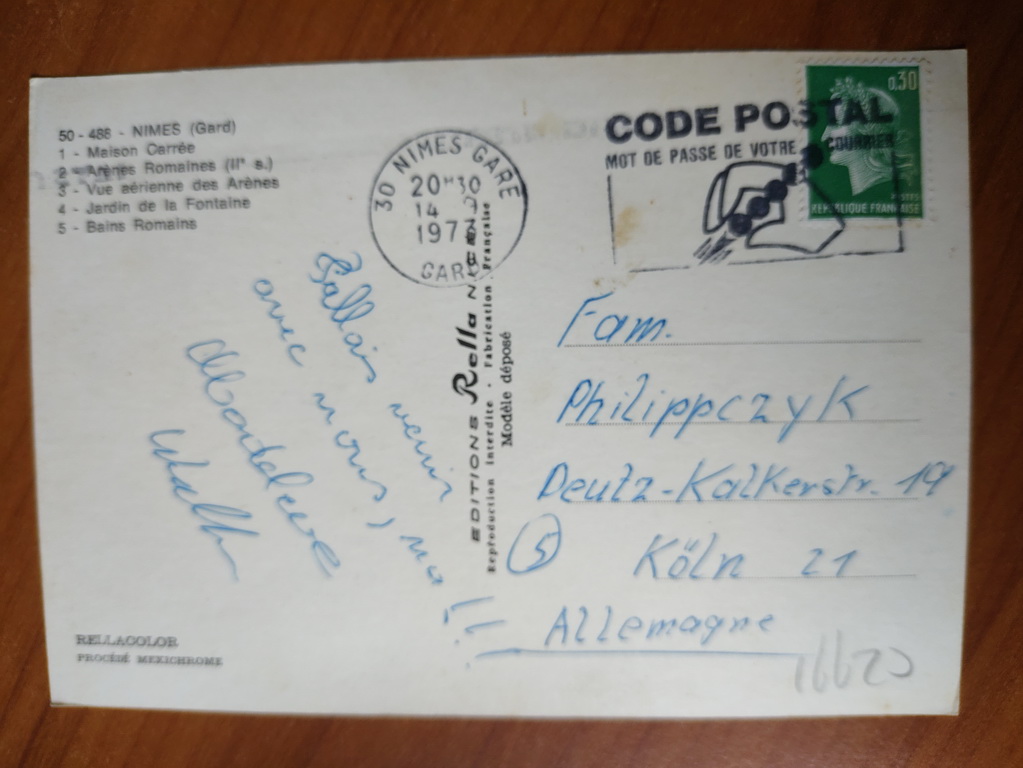 50 - 488 - NIMES (Gard)
1 - Maison Carrée
2 - Arènes Romaines (IIe s.)
3 - Vue aérienne des Arènes
4 - Jardin de la Fontaine
5 - Bains Romains
30 NIMES GARE
20H30
14
197
GARD
CODE POSTAL
MOT DE PASSE DE VOTRE COURRIER
0,30
POSTES
REPUBLIQUE FRANÇAISE
venir
avec nous,
EDITIONS Rella
Reproduction interdite - Fabrication Française
Modèle déposé
Fam.
Philippczyk
Deutz-Kalkerstr. 19
(5) Köln 21
Allemagne
RELLACOLOR
PROCÉDÉ MEXICHROME